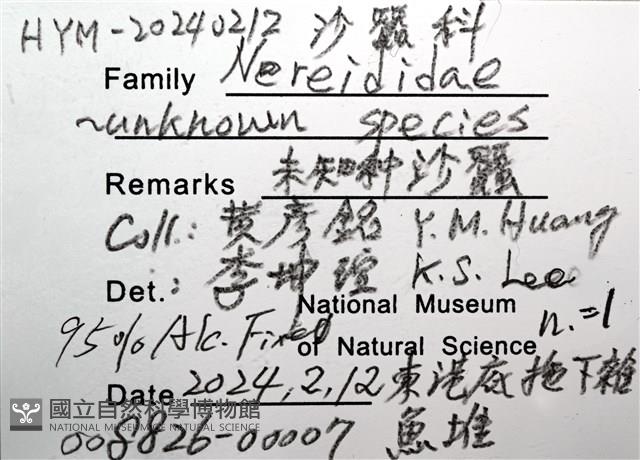 HYM-20240212 沙蠶科
Family Nereididae
~unknown species
Remarks 未知种沙蠶
Coll.: 黄彥銘 Y.M. Huang
Det.: 李坤瑄 K.S. Lee
National Museum
95% Alc. Fixed of Natural Science n.=1
Date 2024.2.12 東港底拖下雜
魚堆
國立自然科學博物館
NATIONAL MUSEUM OF NATURAL SCIENCE
008826-00007